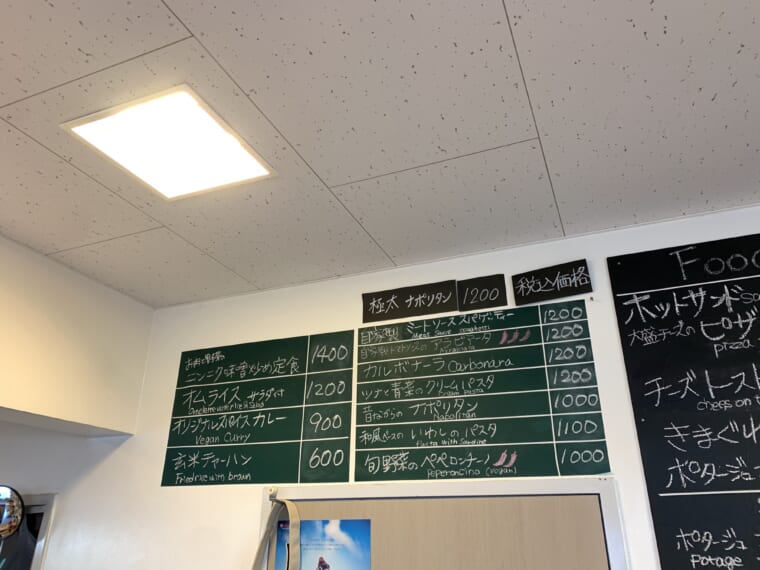 極太 ナポリタン 1200
税込価格
ニンニク味噌炒め定食 1400
オムライス サラダ付 1200
オリジナルスパイスカレー 900
Vegan Curry
玄米チャーハン 600
自家製 ミートソーススパゲッティー 1200
Meat Sauce
アラビアータ 1200
カルボナーラ Carbonara 1200
ツナと青菜のクリームパスタ 1200
昔ながらの ナポリタン 1000
Napolitan
いわしのパスタ 1100
Pasta with Sardine
旬野菜の ペペロンチーノ 1000
Peperoncino (vegan)
Foo
ホットサンド
大盛チーズの ピザ
pizza
チーズトースト
きまぐれ
ポタージュ
ポタージュ
potage